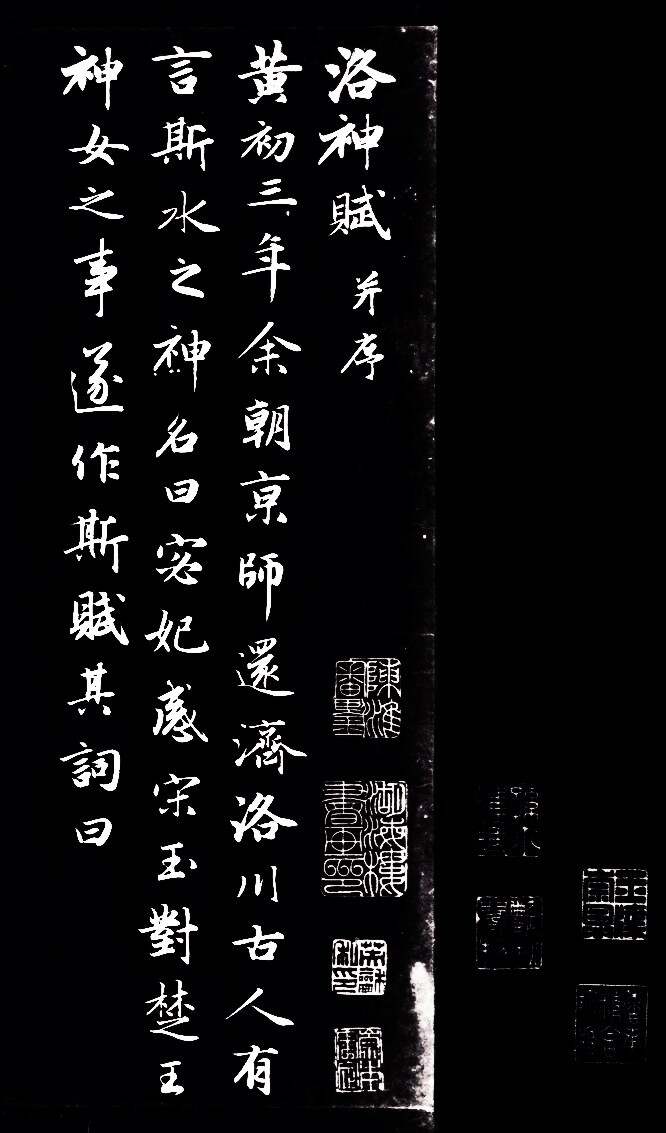 洛神賦并序
黃初三年余朝京師還濟洛川古人有
言斯水之神名曰宓妃感宋玉對楚王
神女之事遂作斯賦其詞曰